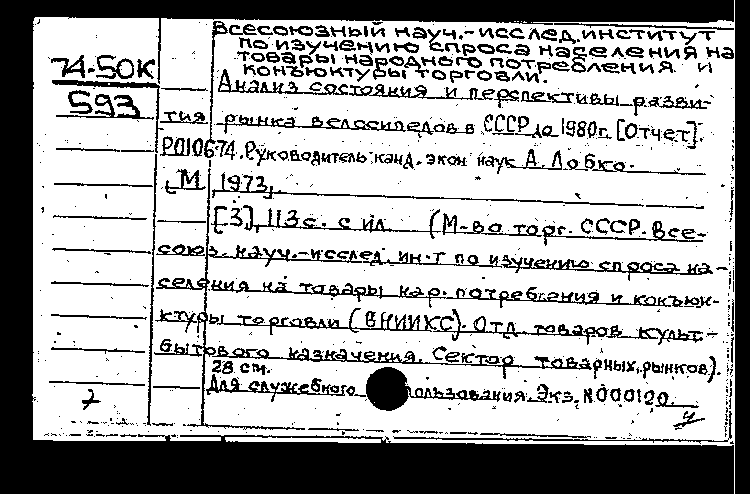 Всесоюзный науч.-исслед.институт
по изучению спроса населения на
товары народного потребления и
конъюктуры торговли.
74-50К
593
Анализ состояния и перспективы разви-
тия рынка велосипедов в СССР до 1980г. [Отчет].
Р010674. Руководитель канд. экон наук А. Лобко.
М, 1973,
[3], 113 с. с ил. (М-во торг. СССР. Все-
союз. науч.-исслед. ин-т по изучению спроса на-
селения на товары нар. потребления и конъюн-
ктуры торговли (ВНИИКС). Отд. товаров культ-
бытового назначения. Сектор товарных рынков).
28 см.
Для служебного пользования. Экз. N000120.